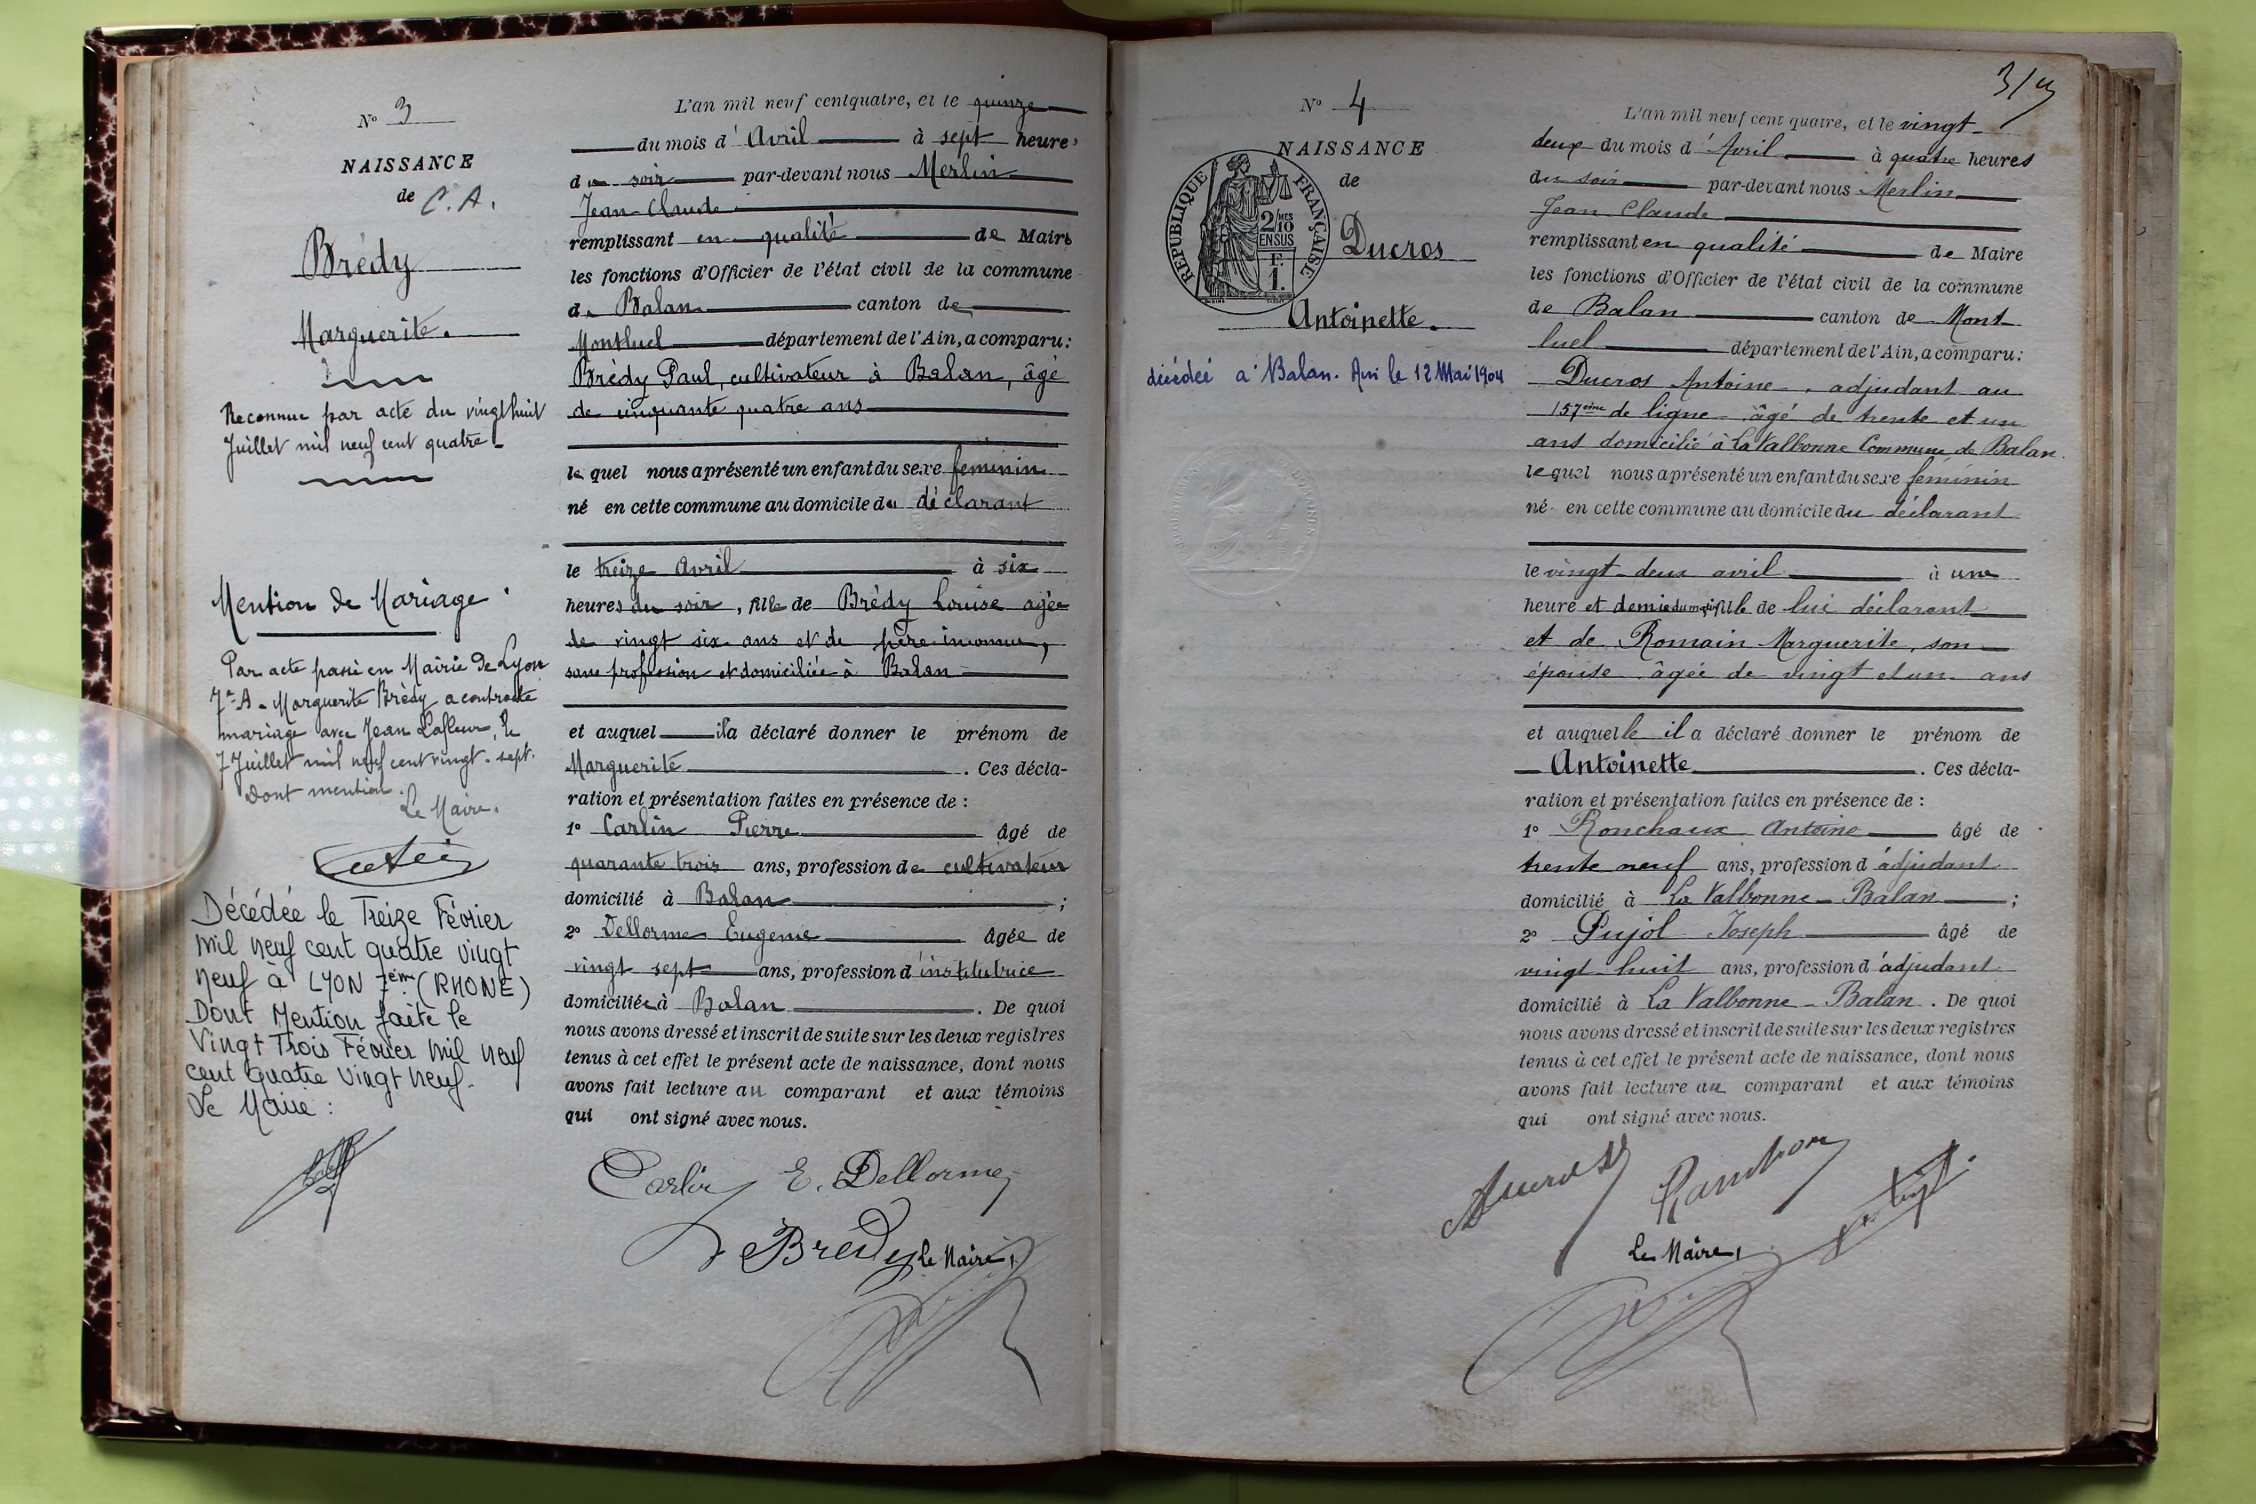 N° 3
NAISSANCE
de C. A.
Brédy
Marguerite.
Reconnue par acte du vingt huit
Juillet mil neuf cent quatre.
Mention de Mariage.
Par acte passé en Mairie de Lyon
7e A. Marguerite Brédy a contracté
mariage avec Jean Lafleur, le
7 Juillet mil neuf cent vingt-sept.
Dont mention.
Le Maire.
Décédée le Treize Février
mil neuf cent quatre vingt
neuf à LYON 7ém (RHONE)
Dont Mention faite le
Vingt Trois Février mil neuf
cent quatre vingt neuf.
Le Maire :
L'an mil neuf cent quatre, et le quinze
du mois d'Avril à sept heures
du soir par-devant nous Merlin
Jean-Claude
remplissant en qualité de Maire
les fonctions d'Officier de l'état civil de la commune
de Balan canton de
Montluel département de l'Ain, a comparu :
Brédy Paul, cultivateur à Balan, âgé
de cinquante quatre ans
lequel nous a présenté un enfant du sexe féminin
né en cette commune au domicile du déclarant
le treize Avril à six
heures du soir, fille de Brédy Louise agée
de vingt six ans et de père inconnu,
sans profession et domiciliée à Balan
et auquel il a déclaré donner le prénom de
Marguerite. Ces décla-
ration et présentation faites en présence de :
1° Carlin Pierre âgé de
quarante trois ans, profession de cultivateur
domicilié à Balan ;
2° Dellorme Eugenie âgée de
vingt sept ans, profession d'institutrice
domiciliée à Balan. De quoi
nous avons dressé et inscrit de suite sur les deux registres
tenus à cet effet le présent acte de naissance, dont nous
avons fait lecture au comparant et aux témoins
qui ont signé avec nous.
Carlin E. Dellorme
Brédy Le Maire,
3/
N° 4
NAISSANCE
de
REPUBLIQUE FRANÇAISE
2/10MES
EN SUS
F.
1.
Ducros
Antoinette.
décédée à Balan. Ain le 12 Mai 1904
L'an mil neuf cent quatre, et le vingt-
deux du mois d'Avril à quatre heures
du soir par-devant nous Merlin
Jean-Claude
remplissant en qualité de Maire
les fonctions d'Officier de l'état civil de la commune
de Balan canton de Mont-
luel département de l'Ain, a comparu :
Ducros Antoine, adjudant au
157ème de ligne âgé de trente et un
ans domicilié à La Valbonne Commune de Balan.
lequel nous a présenté un enfant du sexe féminin
né en cette commune au domicile du déclarant
le vingt-deux avril à une
heure et demie du matin fille de lui déclarant
et de Romain Marguerite, son
épouse âgée de vingt et un ans
et auquel le il a déclaré donner le prénom de
Antoinette. Ces décla-
ration et présentation faites en présence de :
1° Ronchaux Antoine âgé de
trente neuf ans, profession d'adjudant
domicilié à La Valbonne-Balan ;
2° Pujol Joseph âgé de
vingt huit ans, profession d'adjudant
domicilié à La Valbonne-Balan. De quoi
nous avons dressé et inscrit de suite sur les deux registres
tenus à cet effet le présent acte de naissance, dont nous
avons fait lecture au comparant et aux témoins
qui ont signé avec nous.
Ducros
Le Maire,